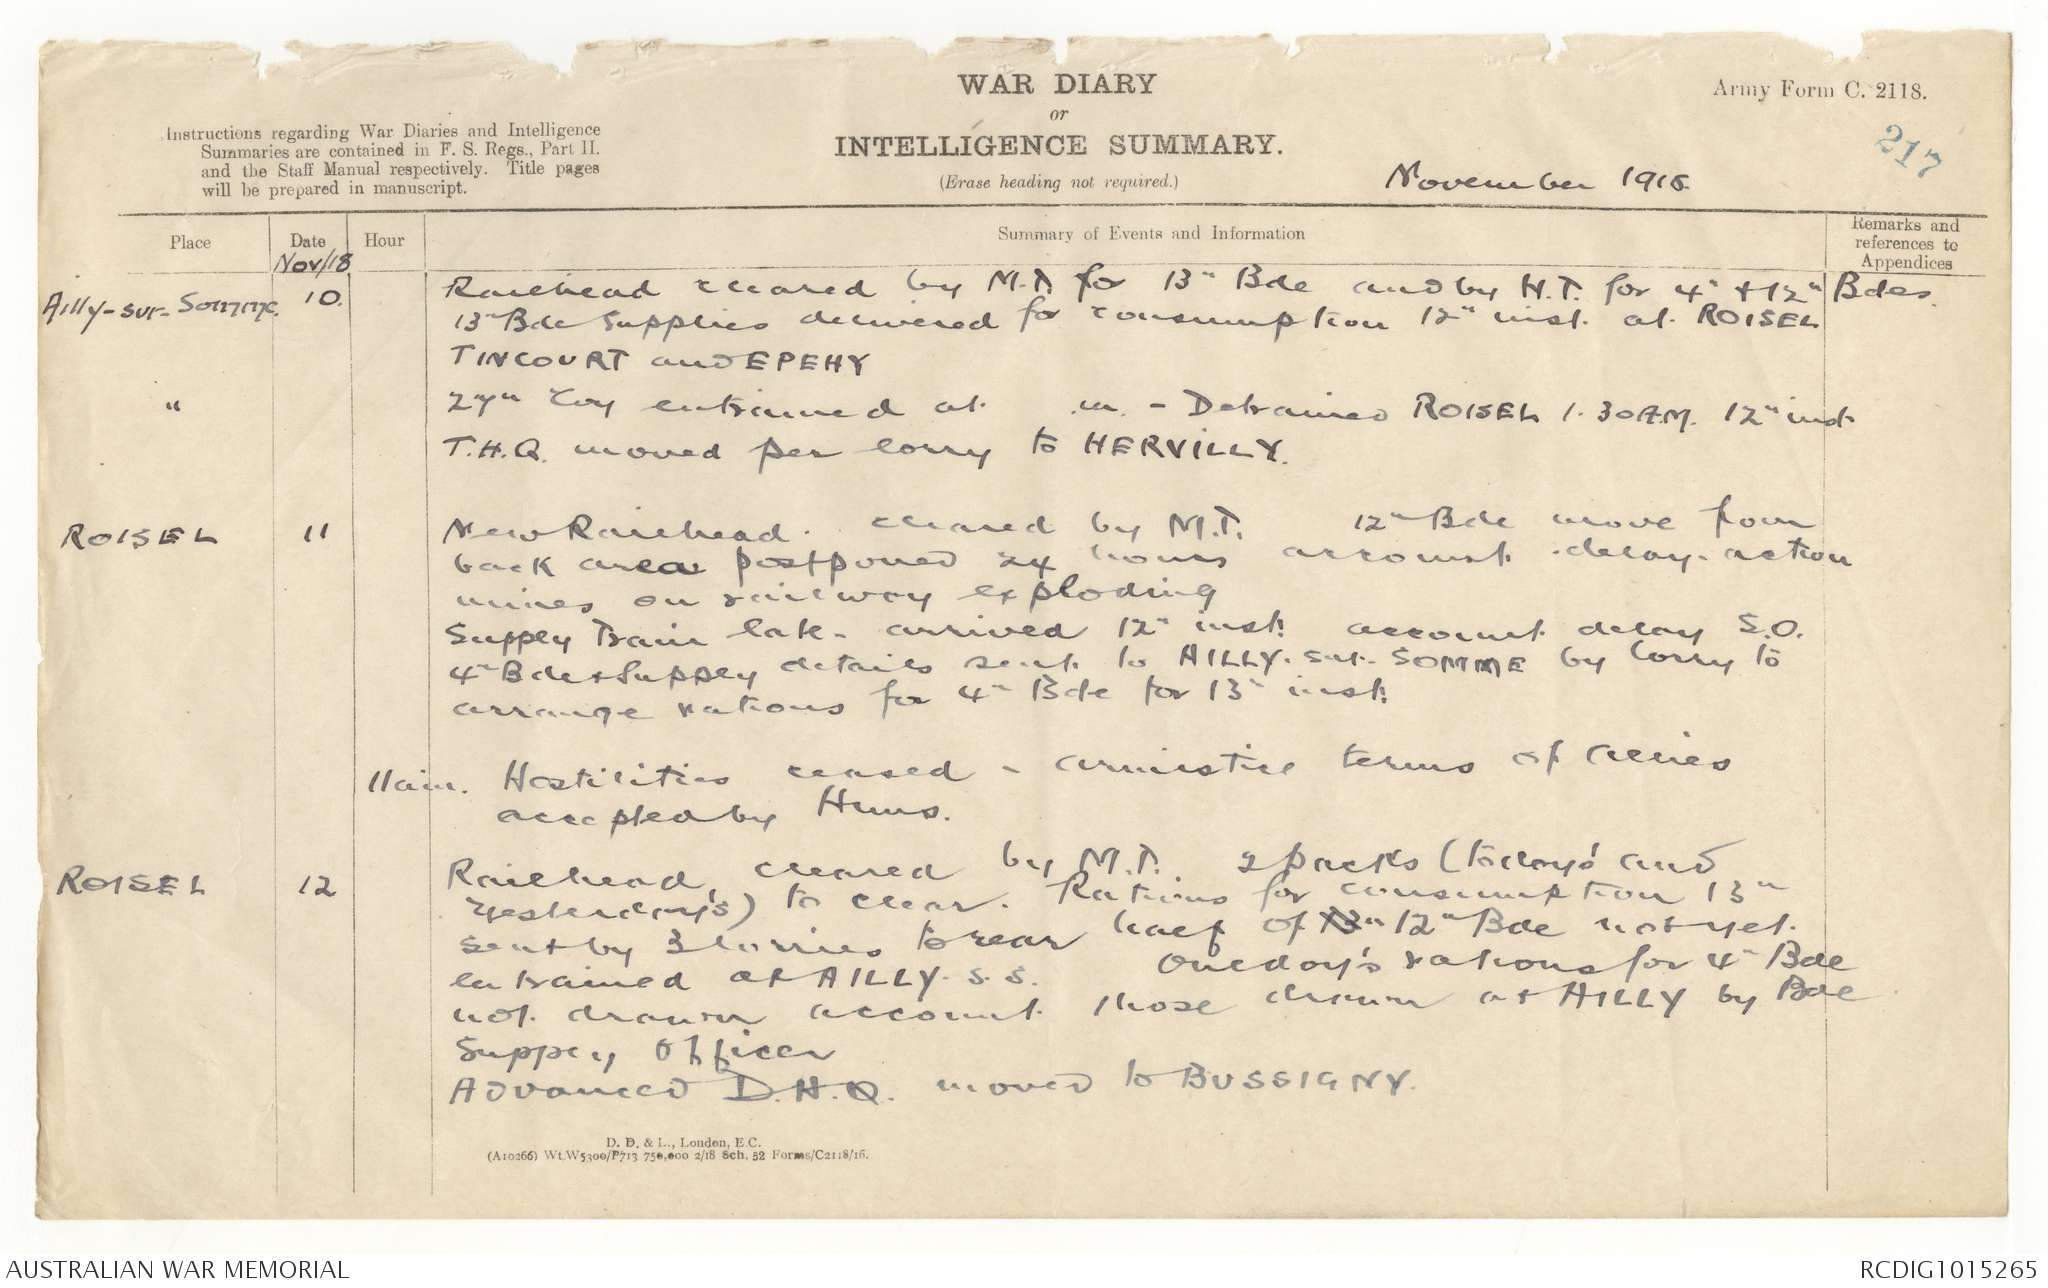 WAR DIARY
or
INTELLIGENCE SUMMARY.
(Erase heading not required.)
Army Form C. 2118.
217
Instructions regarding War Diaries and Intelligence
Summaries are contained in F. S. Regs., Part II.
and the Staff Manual respectively. Title pages
will be prepared in manuscript.
November 1918
Place
Date
Hour
Summary of Events and Information
Remarks and
references to
Appendices
Nov/18
Ailly-sur-Somme. 10. Railhead cleared by M.T. for 13" Bde and by H.T. for 4" + 12" Bdes.
13" Bde Supplies delivered for consumption 12" inst. at ROISEL
TINCOURT and EPEHY
" 27" Coy entrained at .m. - Detrained ROISEL 1.30 A.M. 12" inst.
T.H.Q. moved per lorry to HERVILLY.
ROISEL 11 New Railhead. cleared by M.T. 12" Bde move from
back area postponed 24 hours account delay-action
mines on railway exploding
Supply Train late - arrived 12" inst. account delay S.O.
4" Bde + Supply details sent to AILLY-sur-SOMME by lorry to
arrange rations for 4" Bde for 13" inst.
11am. Hostilities ceased - armistice terms of allies
accepted by Huns.
ROISEL 12 Railhead cleared by M.T. 2 packs (today's and
yesterday's) to clear. Rations for consumption 13"
sent by 3 lorries to rear half of 12" Bde not yet
entrained at AILLY.S.S. One day's rations for 4" Bde
not drawn account those drawn at AILLY by Bde
Supply Officer
Advanced D.H.Q. moved to BUSSIGNY.
D. D. & L., London, E.C.
(A10266) Wt.W5300/P713 750,000 2/18 Sch. 52 Forms/C2118/16.
AUSTRALIAN WAR MEMORIAL
RCDIG1015265